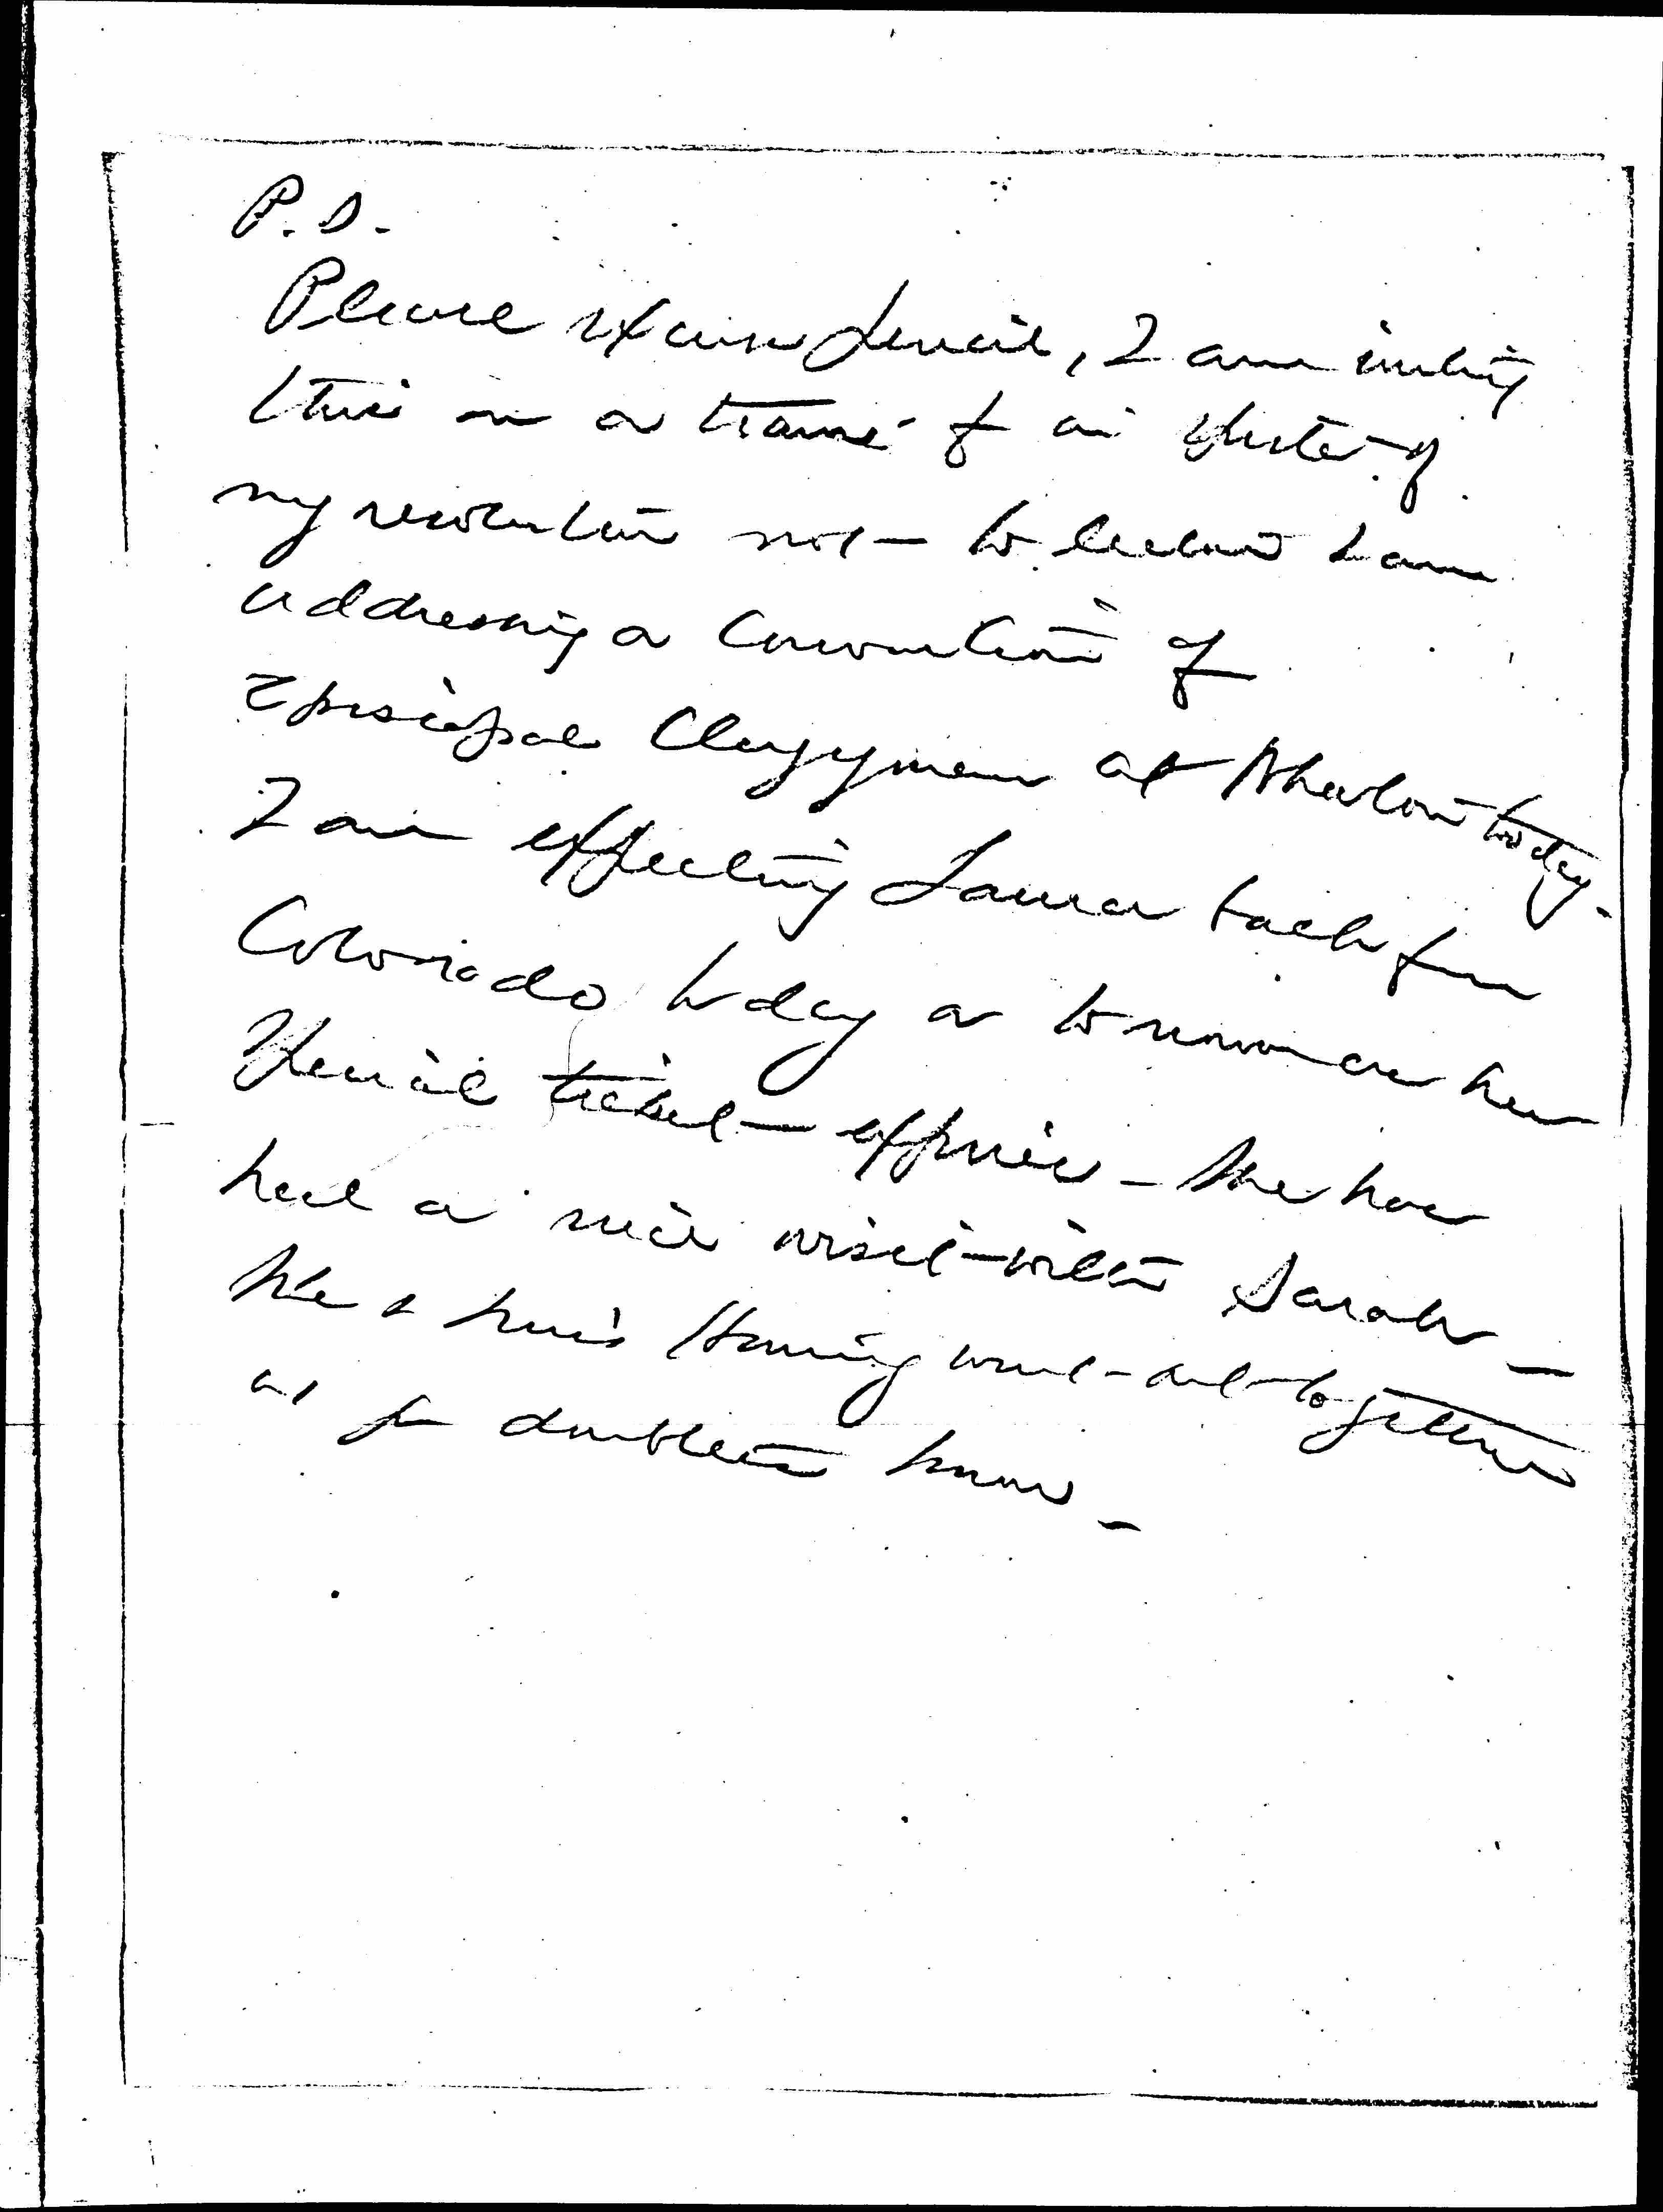 P.S.
Please excuse pencil, I am writing
this on a train & in spite of
my resolution not to lecture I am
addressing a Convention of
Episcopal Clergymen at today.
I am expecting Laura back from
Colorado today or tomorrow her
Special ticket expires - She has
had a nice visit with Sarah -
She & Miss went out together
as you doubtless know -